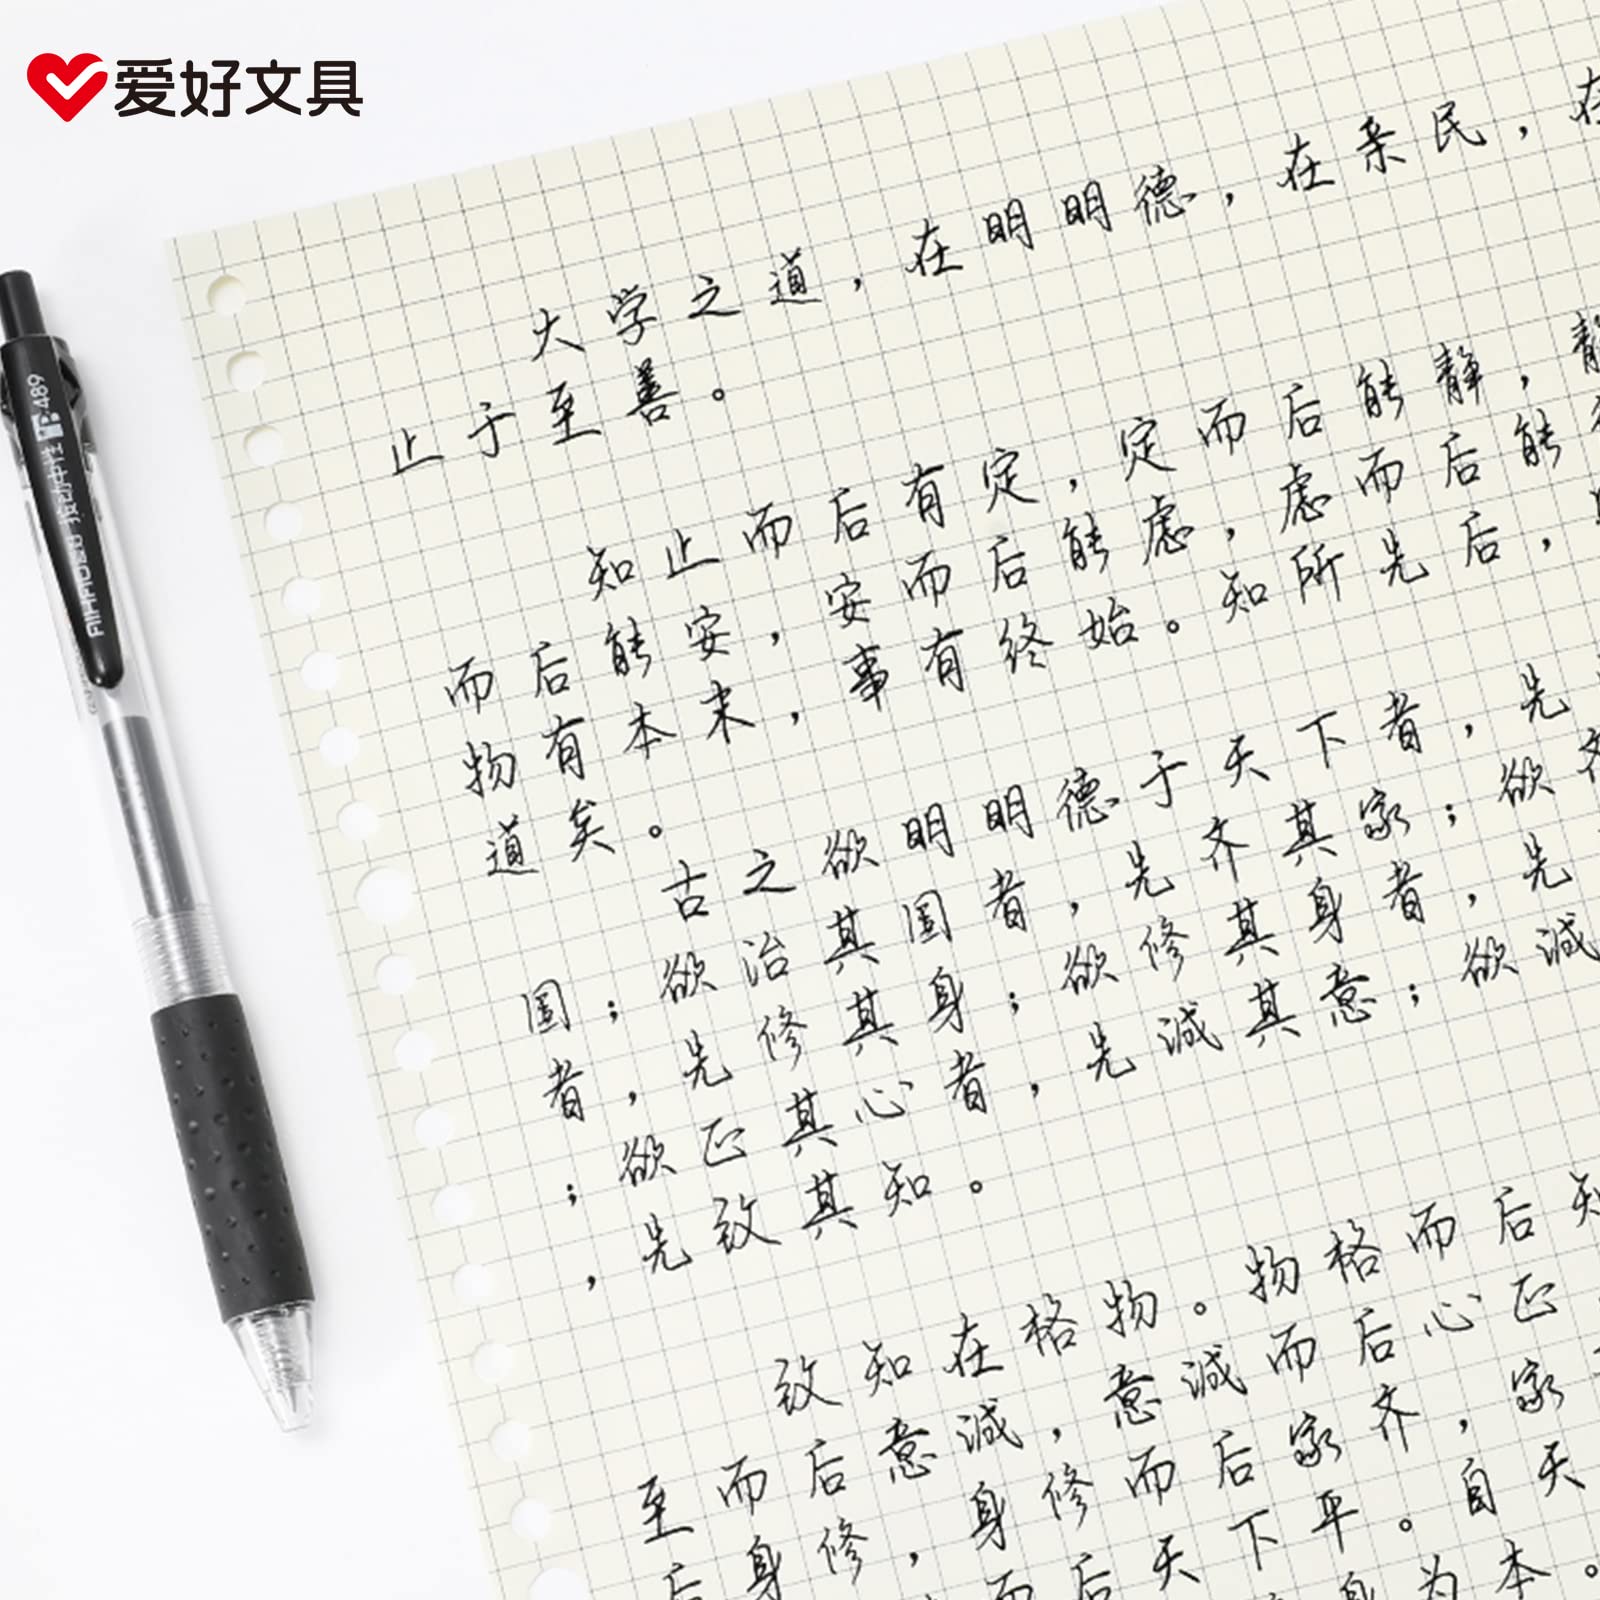 爱好文具
AIHAO489 按动中性 489
大学之道，在明明德，在亲民，在
止于至善。
知止而后有定，定而后能静，静
而后能安，安而后能虑，虑而后能
物有本末，事有终始。知所先后，
道矣。
古之欲明明德于天下者，先
国；欲治其国者，先齐其家；欲齐
者，先修其身；欲修其身者，先
；欲正其心者，先诚其意；欲诚
，先致其知。
致知在格物。物格而后知
至而后意诚，意诚而后心正
后身修，身修而后家齐，家
而后天下平。自天
身为本。